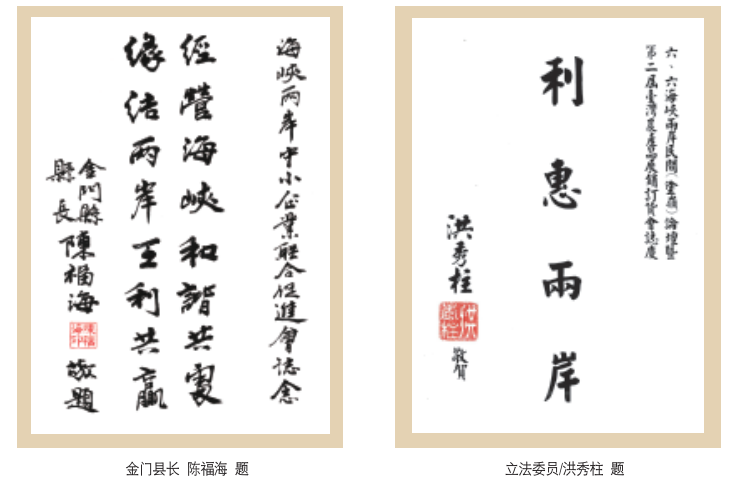 海峽兩岸中小企業聯合促進會誌念
經營海峽和諧共處
緣结兩岸王利共贏
金門縣
縣長
陳福海
敬題
金门县长 陈福海 题
六、六海峽兩岸民間(塗扇)論壇暨
第二屆臺灣農產品展銷訂貨會誌慶
利惠兩岸
洪秀柱
敬賀
立法委员/洪秀柱 题